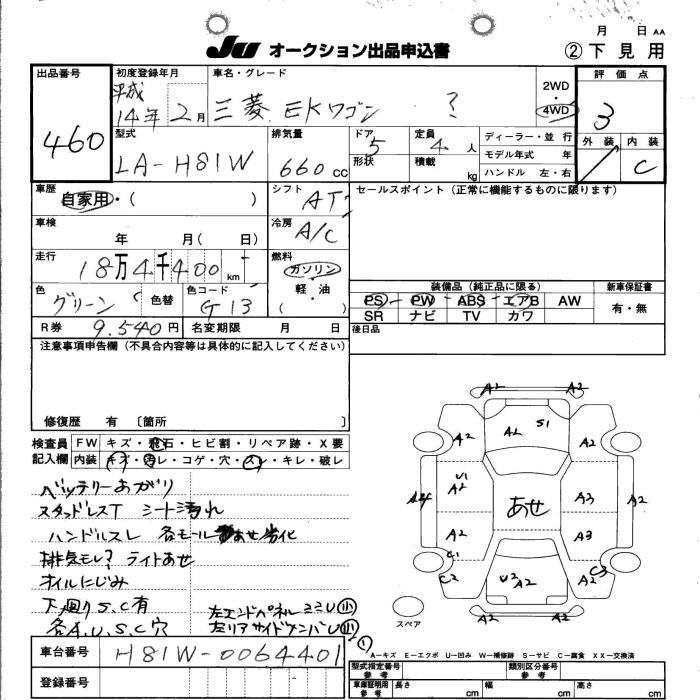 月 日 AA
JU オークション出品申込書 ②下見用
出品番号 初度登録年月 車名・グレード 評価点
460 平成14年2月 三菱 EKワゴン ? 2WD・4WD 3
型式 排気量 ドア 定員 ディーラー・並行 外装 内装
LA-H81W 660cc 5 4人 モデル年式 年 C
形状 積載 kg ハンドル 左・右
車歴 シフト セールスポイント(正常に機能するものに限ります)
自家用・( ) AT
車検 冷房
年 月( 日) A/C
走行 燃料
18万4千400km ガソリン
色 色コード 軽・油 装備品(純正品に限る) 新車保証書
グリーン 色替 G13 ( ) PS PW ABS エアB AW 有・無
SR ナビ TV カワ
R券 9.540円 名変期限 月 日 後日品
注意事項申告欄(不具合内容等は具体的に記入してください)
修復歴 有 〔箇所 〕
検査員 FW キズ・飛石・ヒビ割・リペア跡・X要
記入欄 内装 キズ・汚レ・コゲ・穴・スレ・キレ・破レ
バッテリーあがり
スタッドレスT シート汚れ
ハンドルスレ 各モールあせ劣化
排気モレ? ライトあせ
オイルにじみ
下廻りS.C有 左エンドパネルミミU小
各A.U.S.C穴 左リアサイドメンバU小
A2 A2
A2 S1
A2 A2
U1
A4 A2 あせ A3 A2
A2 A3
C1
C2 U2 A2 A2 C3
A2 A2
スペア
①
A-キズ E-エクボ U-凹み W-補修跡 S-サビ C-腐食 XX-交換済
車台番号 H81W-0064401
型式指定番号 参考 類別区分番号 参考
登録番号
車庫証明用 参考 長さ cm 幅 cm 高さ cm